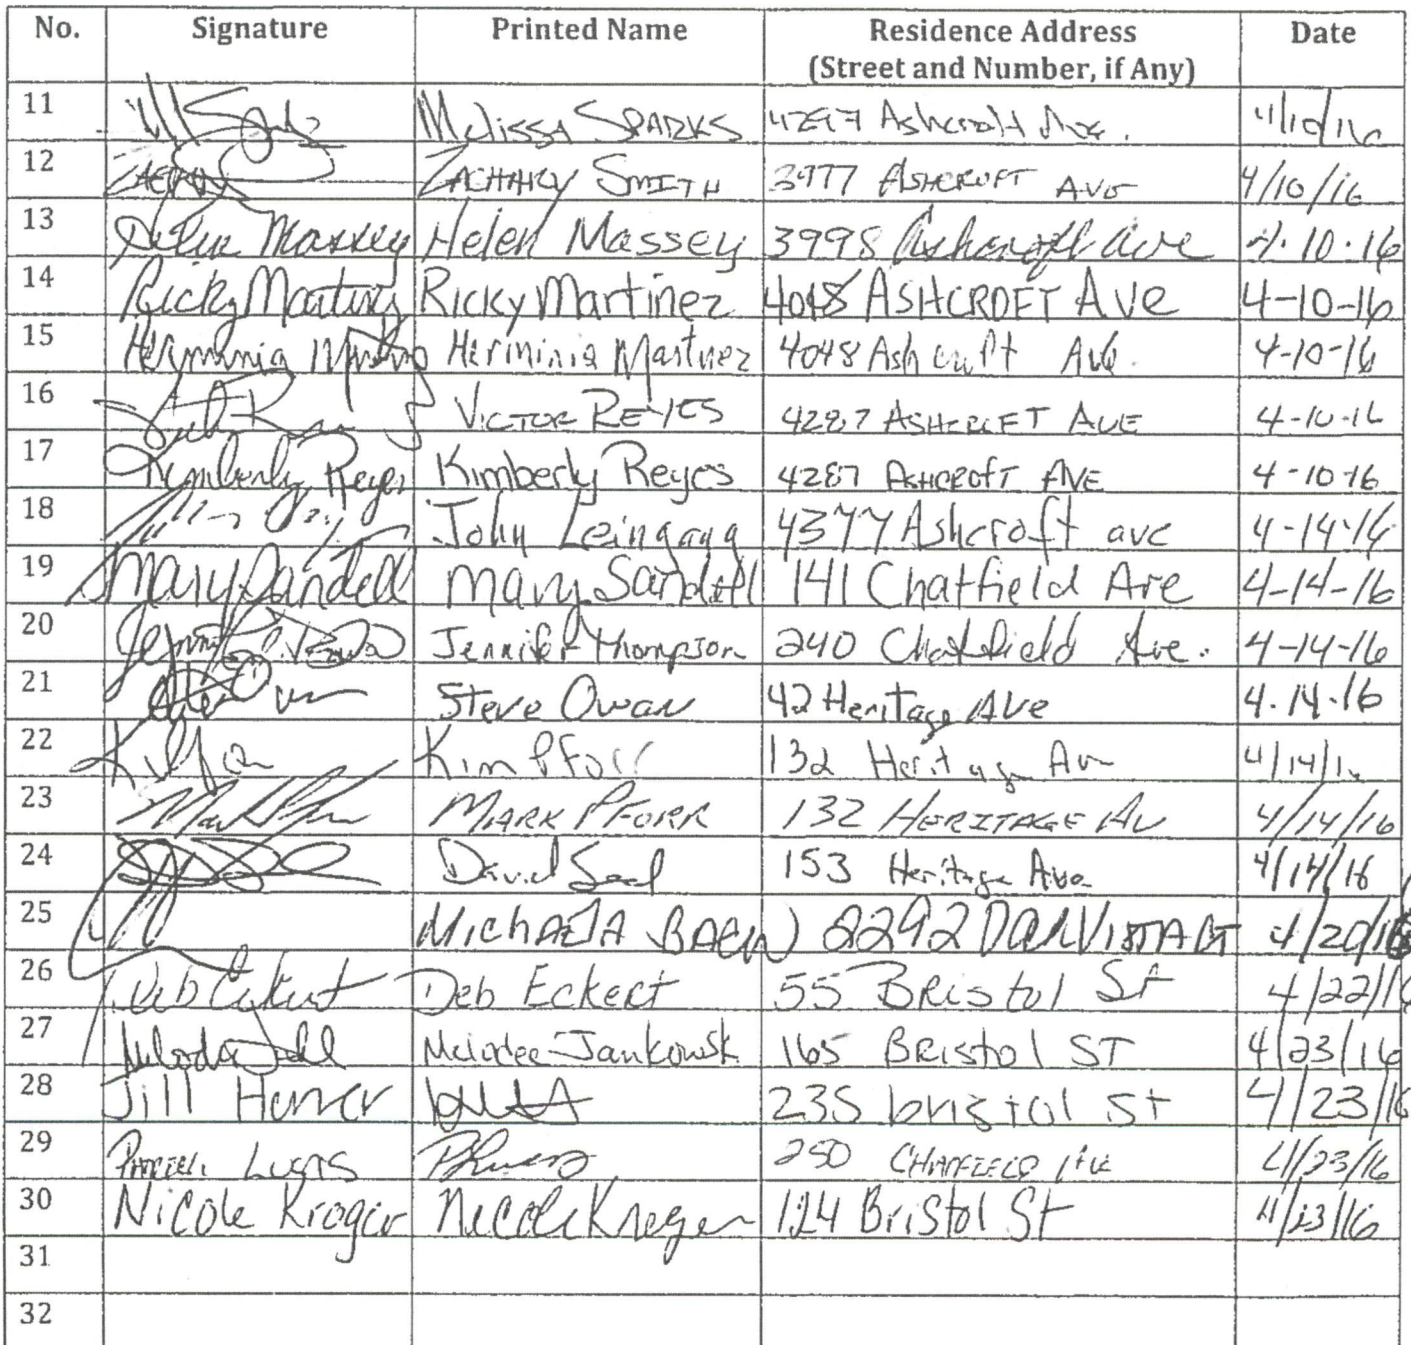 No. Signature Printed Name Residence Address Date
(Street and Number, if Any)
11 Melissa SPARKS 4297 Ashcroft Ave. 4/10/16
12 ZACHARY SMITH 3977 ASHCROFT AVE 4/10/16
13 Helen Massey Helen Massey 3998 Ashcroft Ave 4.10.16
14 Ricky Martinez Ricky Martinez 4048 ASHCROFT AVe 4-10-16
15 Herminia Martinez Herminia Martinez 4048 Ashcroft Ave. 4-10-16
16 VICTOR REYES 4287 ASHCROFT AVE 4-10-16
17 Kimberly Reyes Kimberly Reyes 4287 ASHCROFT AVE 4-10-16
18 John Leingang 4377 Ashcroft ave 4-14-16
19 Mary Sandell Mary Sandell 141 Chatfield Ave 4-14-16
20 Jennifer Thompson 240 Chatfield Ave. 4-14-16
21 Steve Owan 42 Heritage AVe 4.14.16
22 Kim Pforr 132 Heritage Av 4/14/16
23 MARK PFORR 132 HERITAGE AV 4/14/16
24 David 153 Heritage Ave 4/14/16
25 2292 4/20/16
26 Deb Eckert Deb Eckert 55 BRistol St 4/22/16
27 Melodee Jankowsk 165 BRistol ST 4/23/16
28 Jill 235 bristol st 4/23/16
29 LUCAS 250 CHATFIELD AVE 4/23/16
30 Nicole Kroger Nicole Kroger 124 Bristol St 4/23/16
31
32